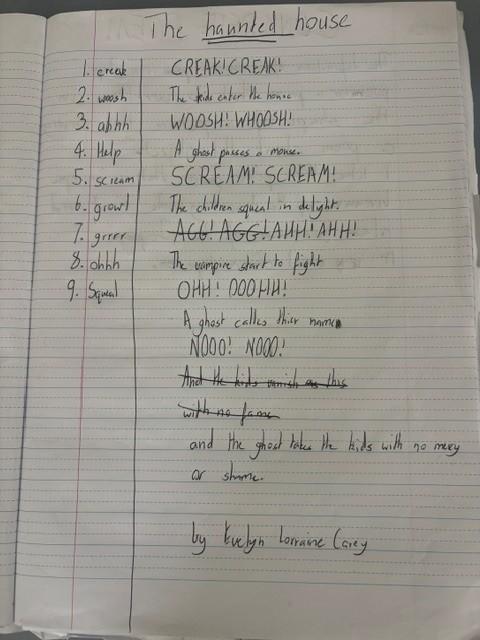 The haunted house
1. creak CREAK! CREAK!
2. woosh The kids enter the house
3. ahhh WOOSH! WHOOSH!
4. Help A ghost passes a mouse.
5. scream SCREAM! SCREAM!
6. growl The children squeal in delight.
7. grrrr AGG! AGG! AHH! AHH!
8. ohhh The vampire start to fight
9. Squeal OHH! OOOHH!
A ghost calles thier name
NOOO! NOOO!
And the kids vanish as this
with no fame
and the ghost takes the kids with no mery
or shame.
by Evelyn Lorraine Carey